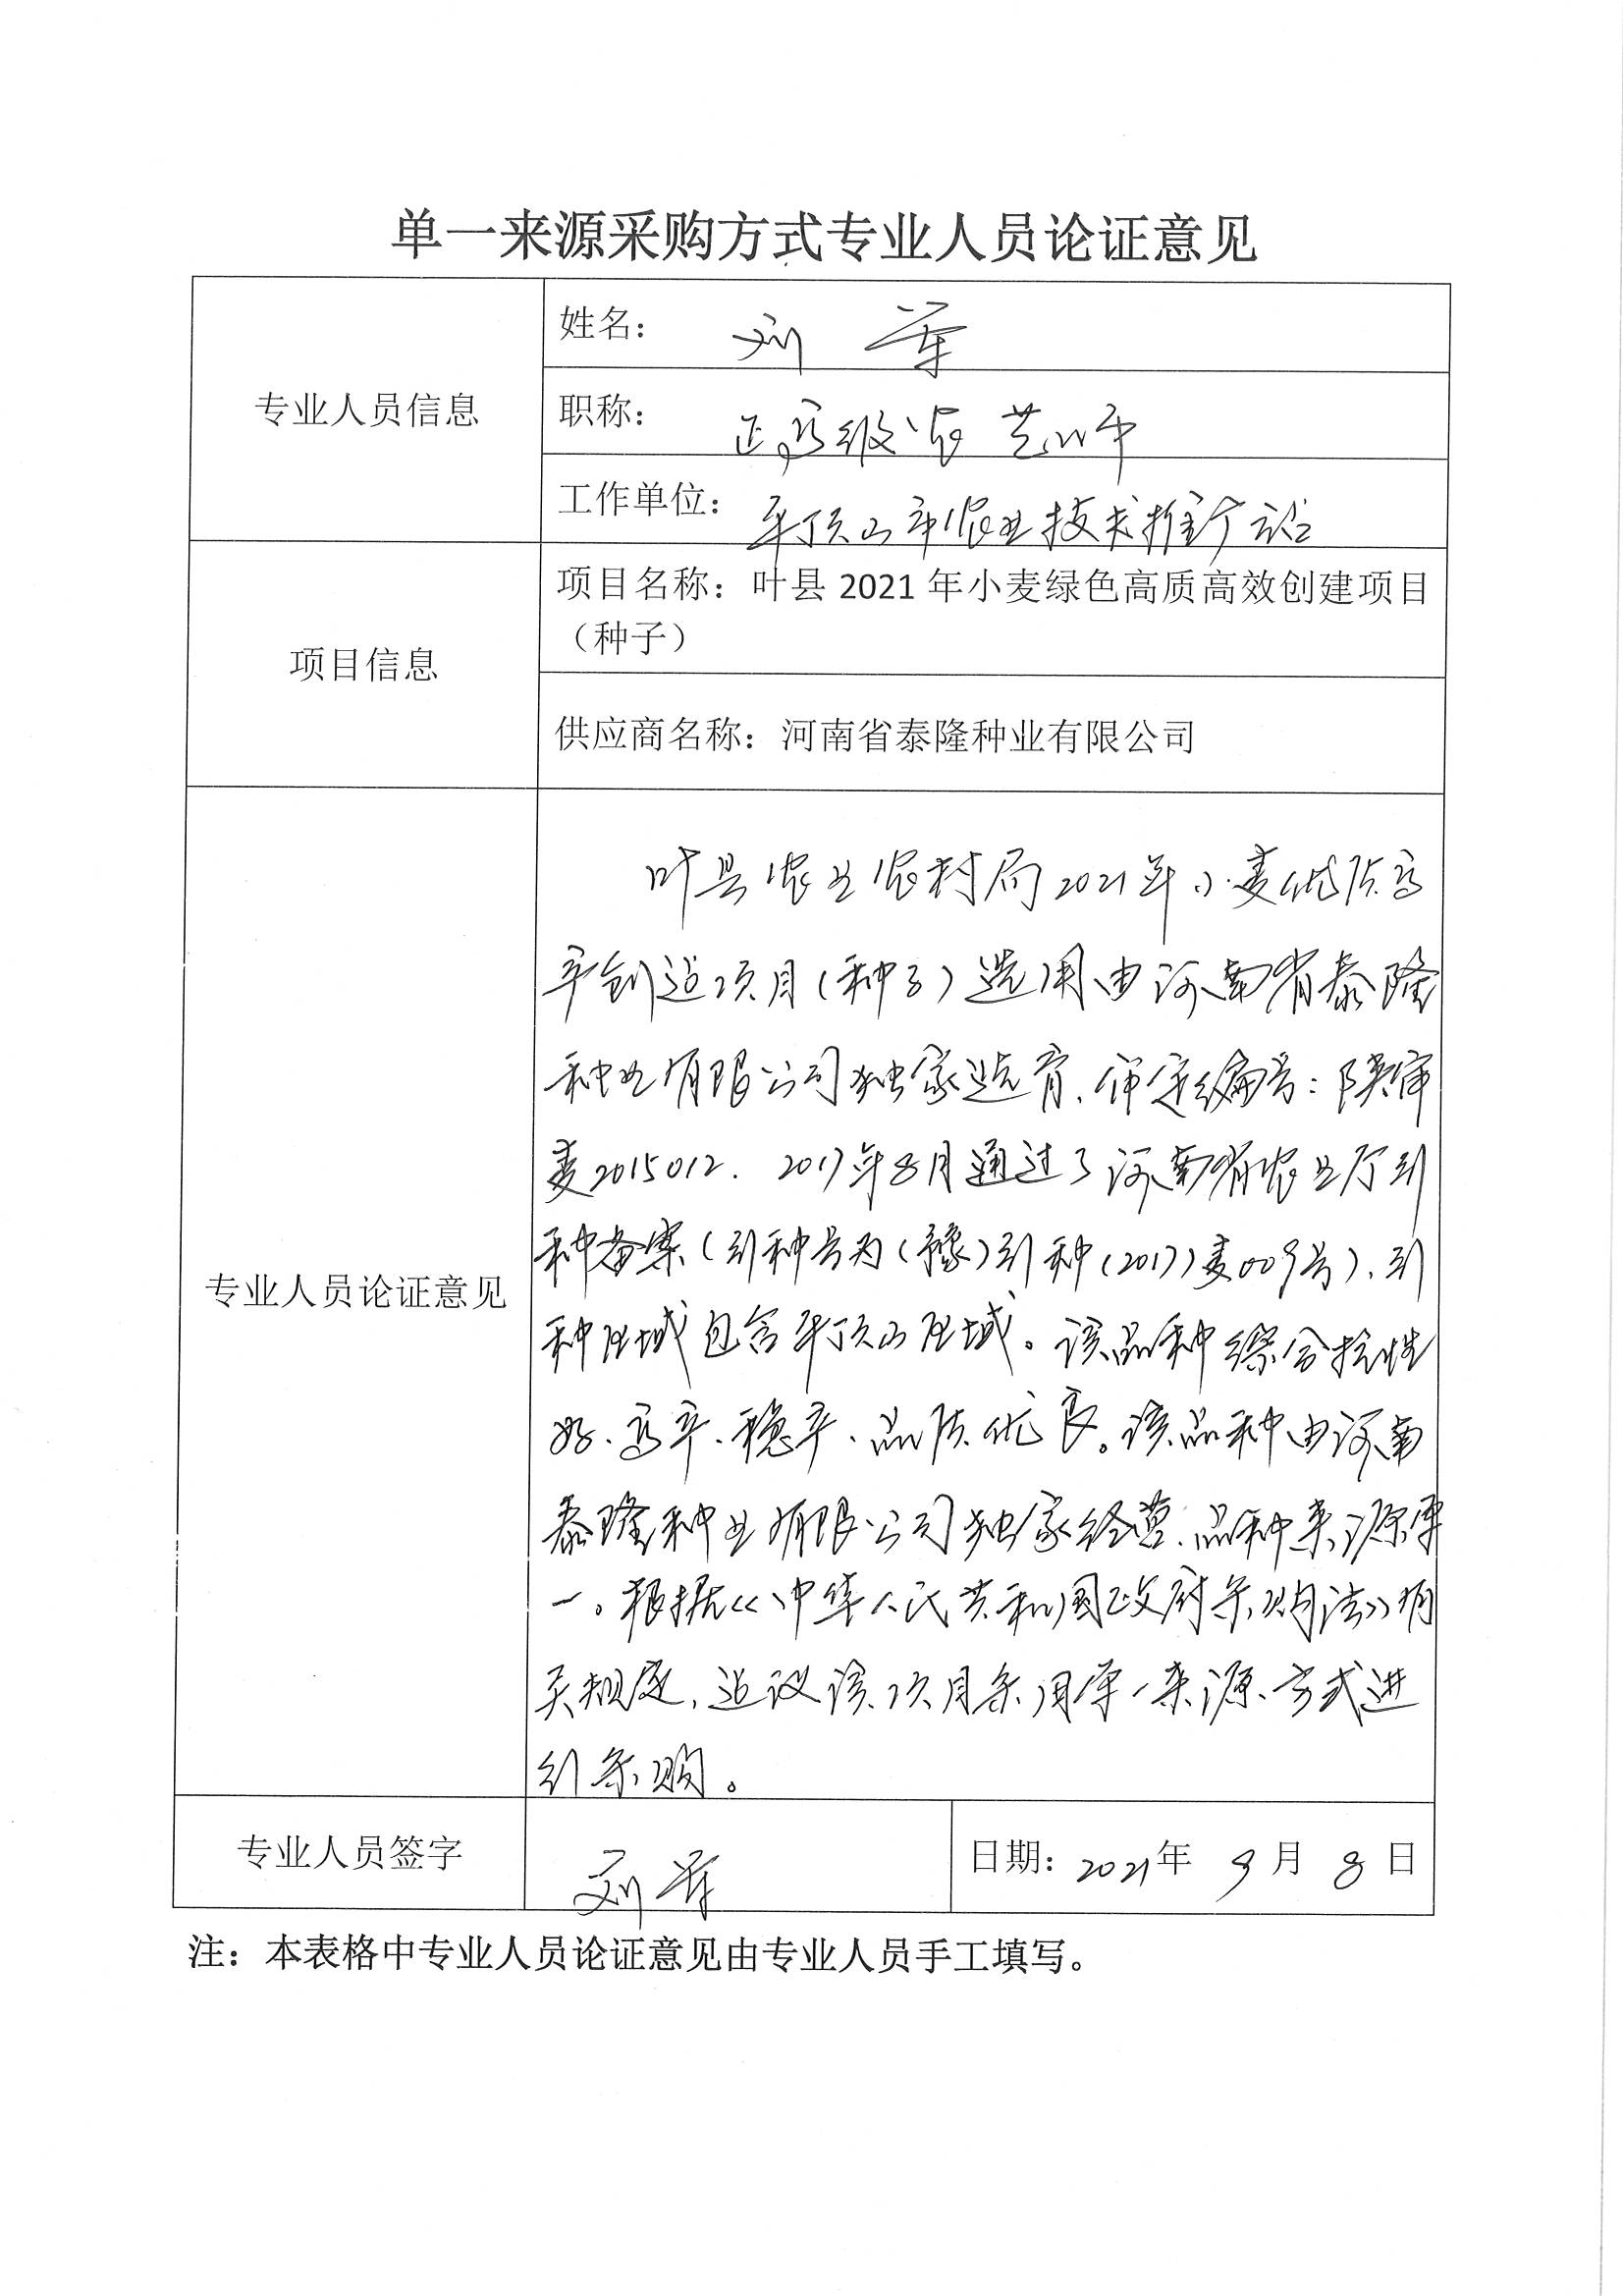 单一来源采购方式专业人员论证意见
专业人员信息
姓名： 刘军
职称： 正高级农艺师
工作单位： 平顶山市农业技术推广站
项目信息
项目名称：叶县 2021 年小麦绿色高质高效创建项目
（种子）
供应商名称：河南省泰隆种业有限公司
专业人员论证意见
叶县农业农村局2021年小麦优质高
产创建项目(种子)选用由河南省泰隆
种业有限公司独家选育、审定编号：陕审
麦2015012. 2017年8月通过了河南省农业厅引
种备案(引种号为(豫)引种(2017)麦009号)、引
种区域包含平顶山区域。该品种综合抗性
好、高产、稳产、品质优良。该品种由河南
泰隆种业有限公司独家经营、品种来源单
一。根据《中华人民共和国政府采购法》有
关规定，建议该项目采用单一来源方式进
行采购。
专业人员签字
刘军
日期：2021年 9月 8日
注：本表格中专业人员论证意见由专业人员手工填写。